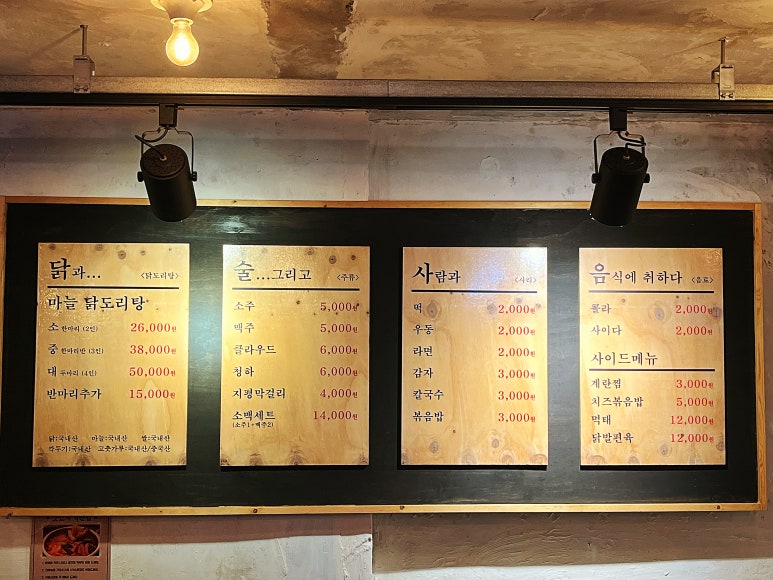 닭과... <닭도리탕>
마늘 닭도리탕
소 한마리 (2인) 26,000원
중 한마리반 (3인) 38,000원
대 두마리 (4인) 50,000원
반마리추가 15,000원
닭:국내산 마늘:국내산 쌀:국내산
깍두기:국내산 고춧가루:국내산/중국산
술...그리고 <주류>
소주 5,000원
맥주 5,000원
클라우드 6,000원
청하 6,000원
지평막걸리 4,000원
소맥세트 14,000원
(소주1+맥주2)
사람과 <사리>
떡 2,000원
우동 2,000원
라면 2,000원
감자 3,000원
칼국수 3,000원
볶음밥 3,000원
음식에 취하다 <음료>
콜라 2,000원
사이다 2,000원
사이드메뉴
계란찜 3,000원
치즈볶음밥 5,000원
먹태 12,000원
닭발편육 12,000원